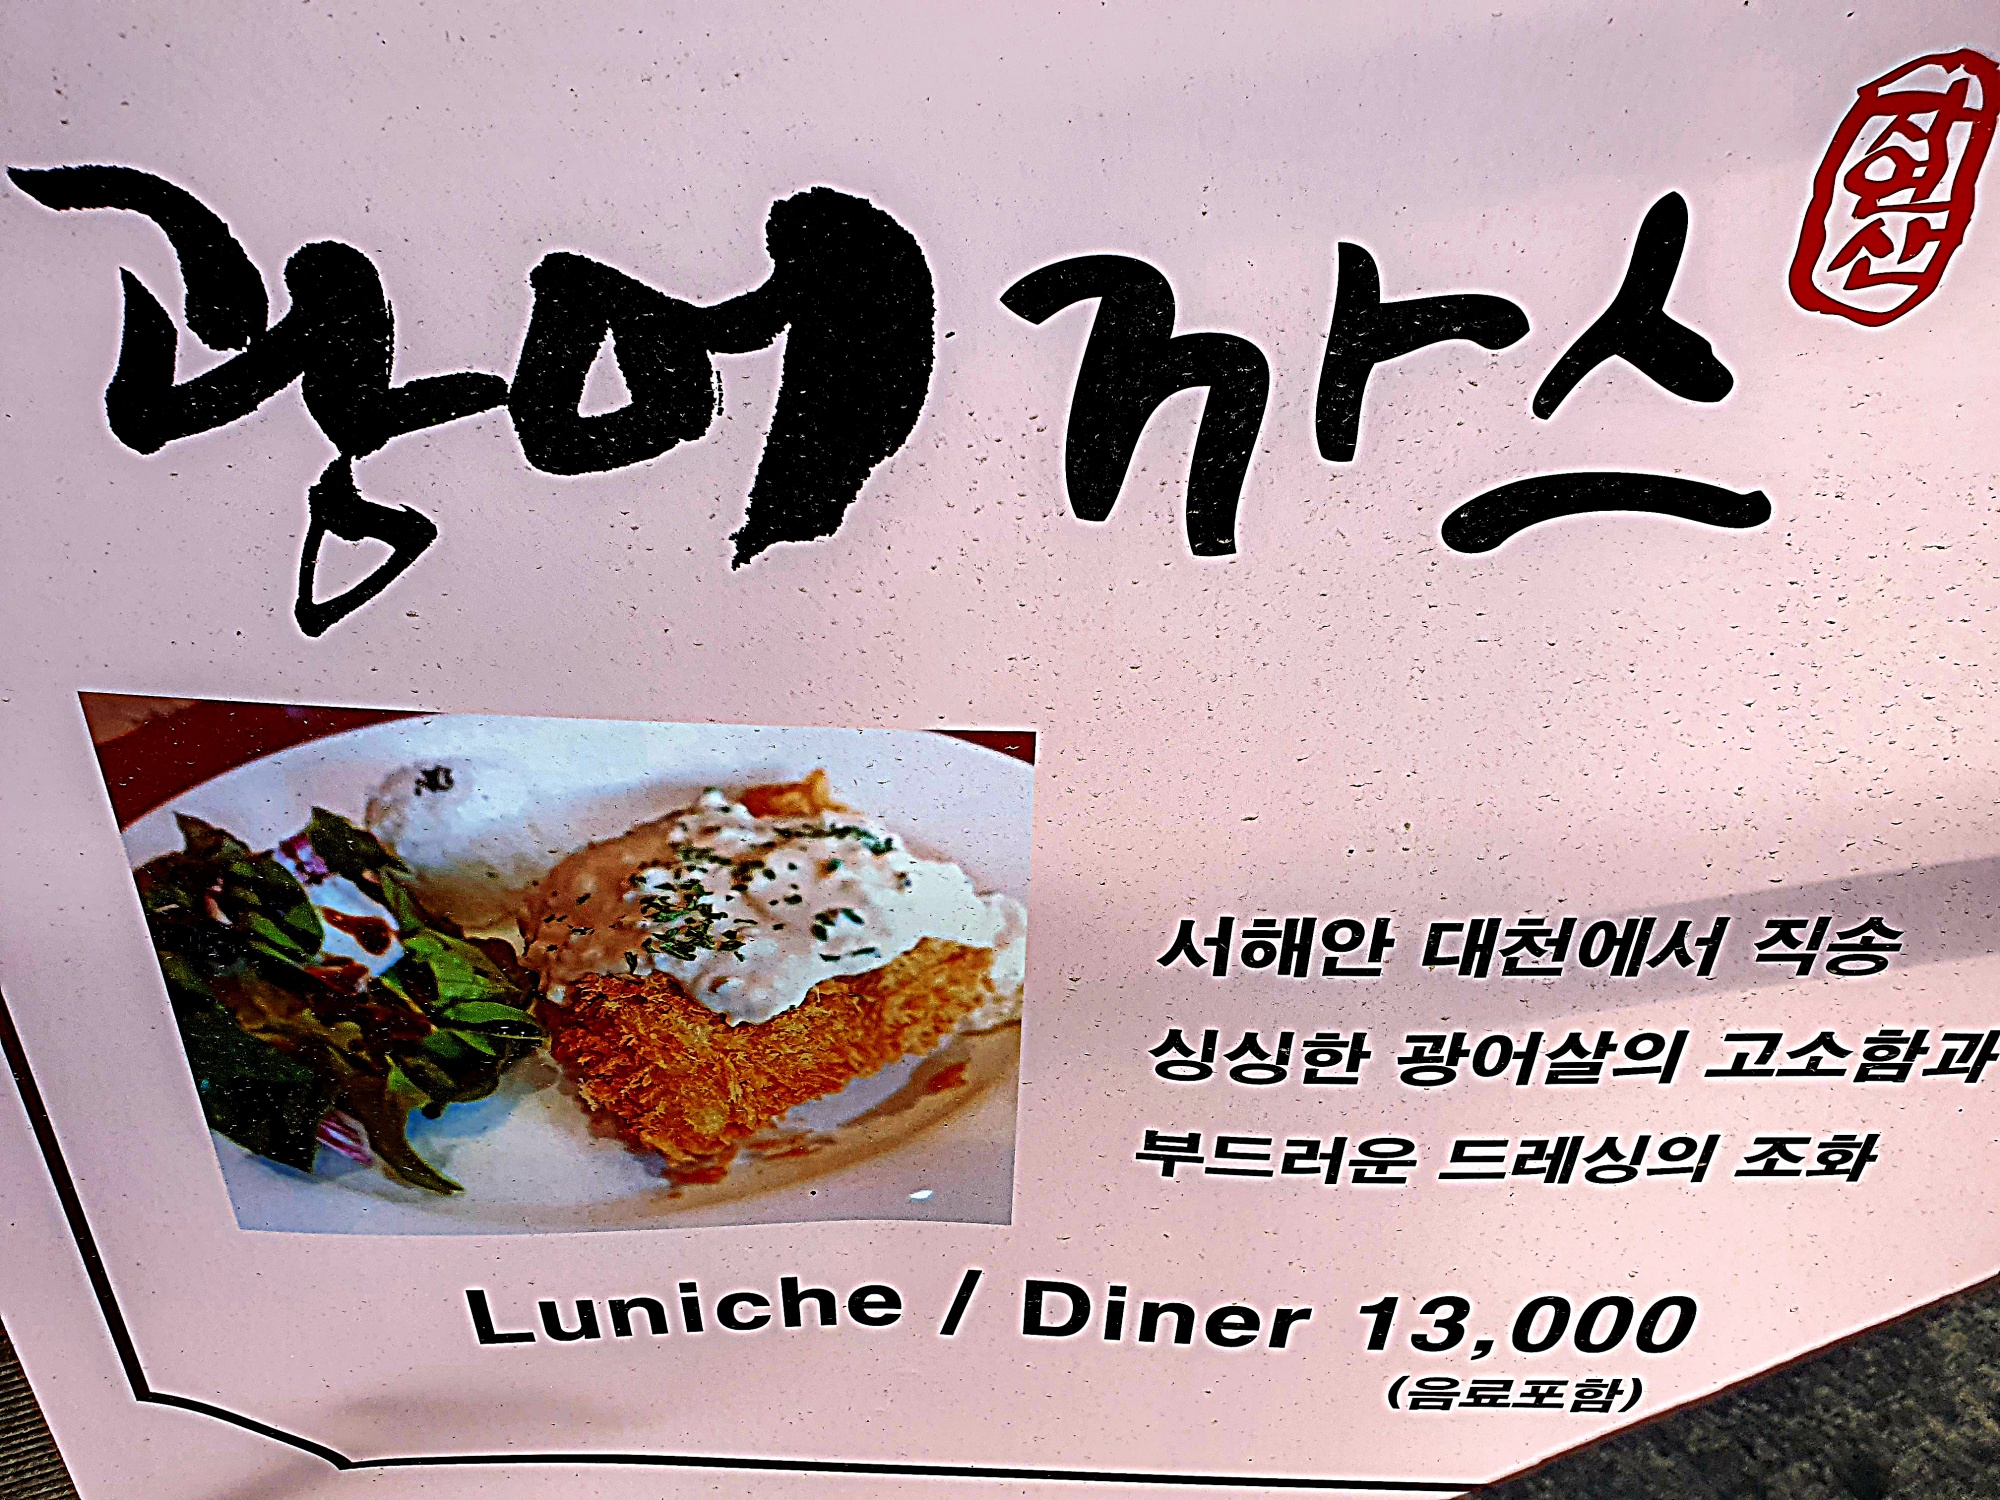 광어까스
자연산
서해안 대천에서 직송
싱싱한 광어살의 고소함과
부드러운 드레싱의 조화
Luniche / Diner 13,000
(음료포함)